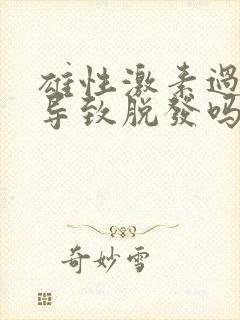 雄性激素過
导致脱發吗
奇妙雪